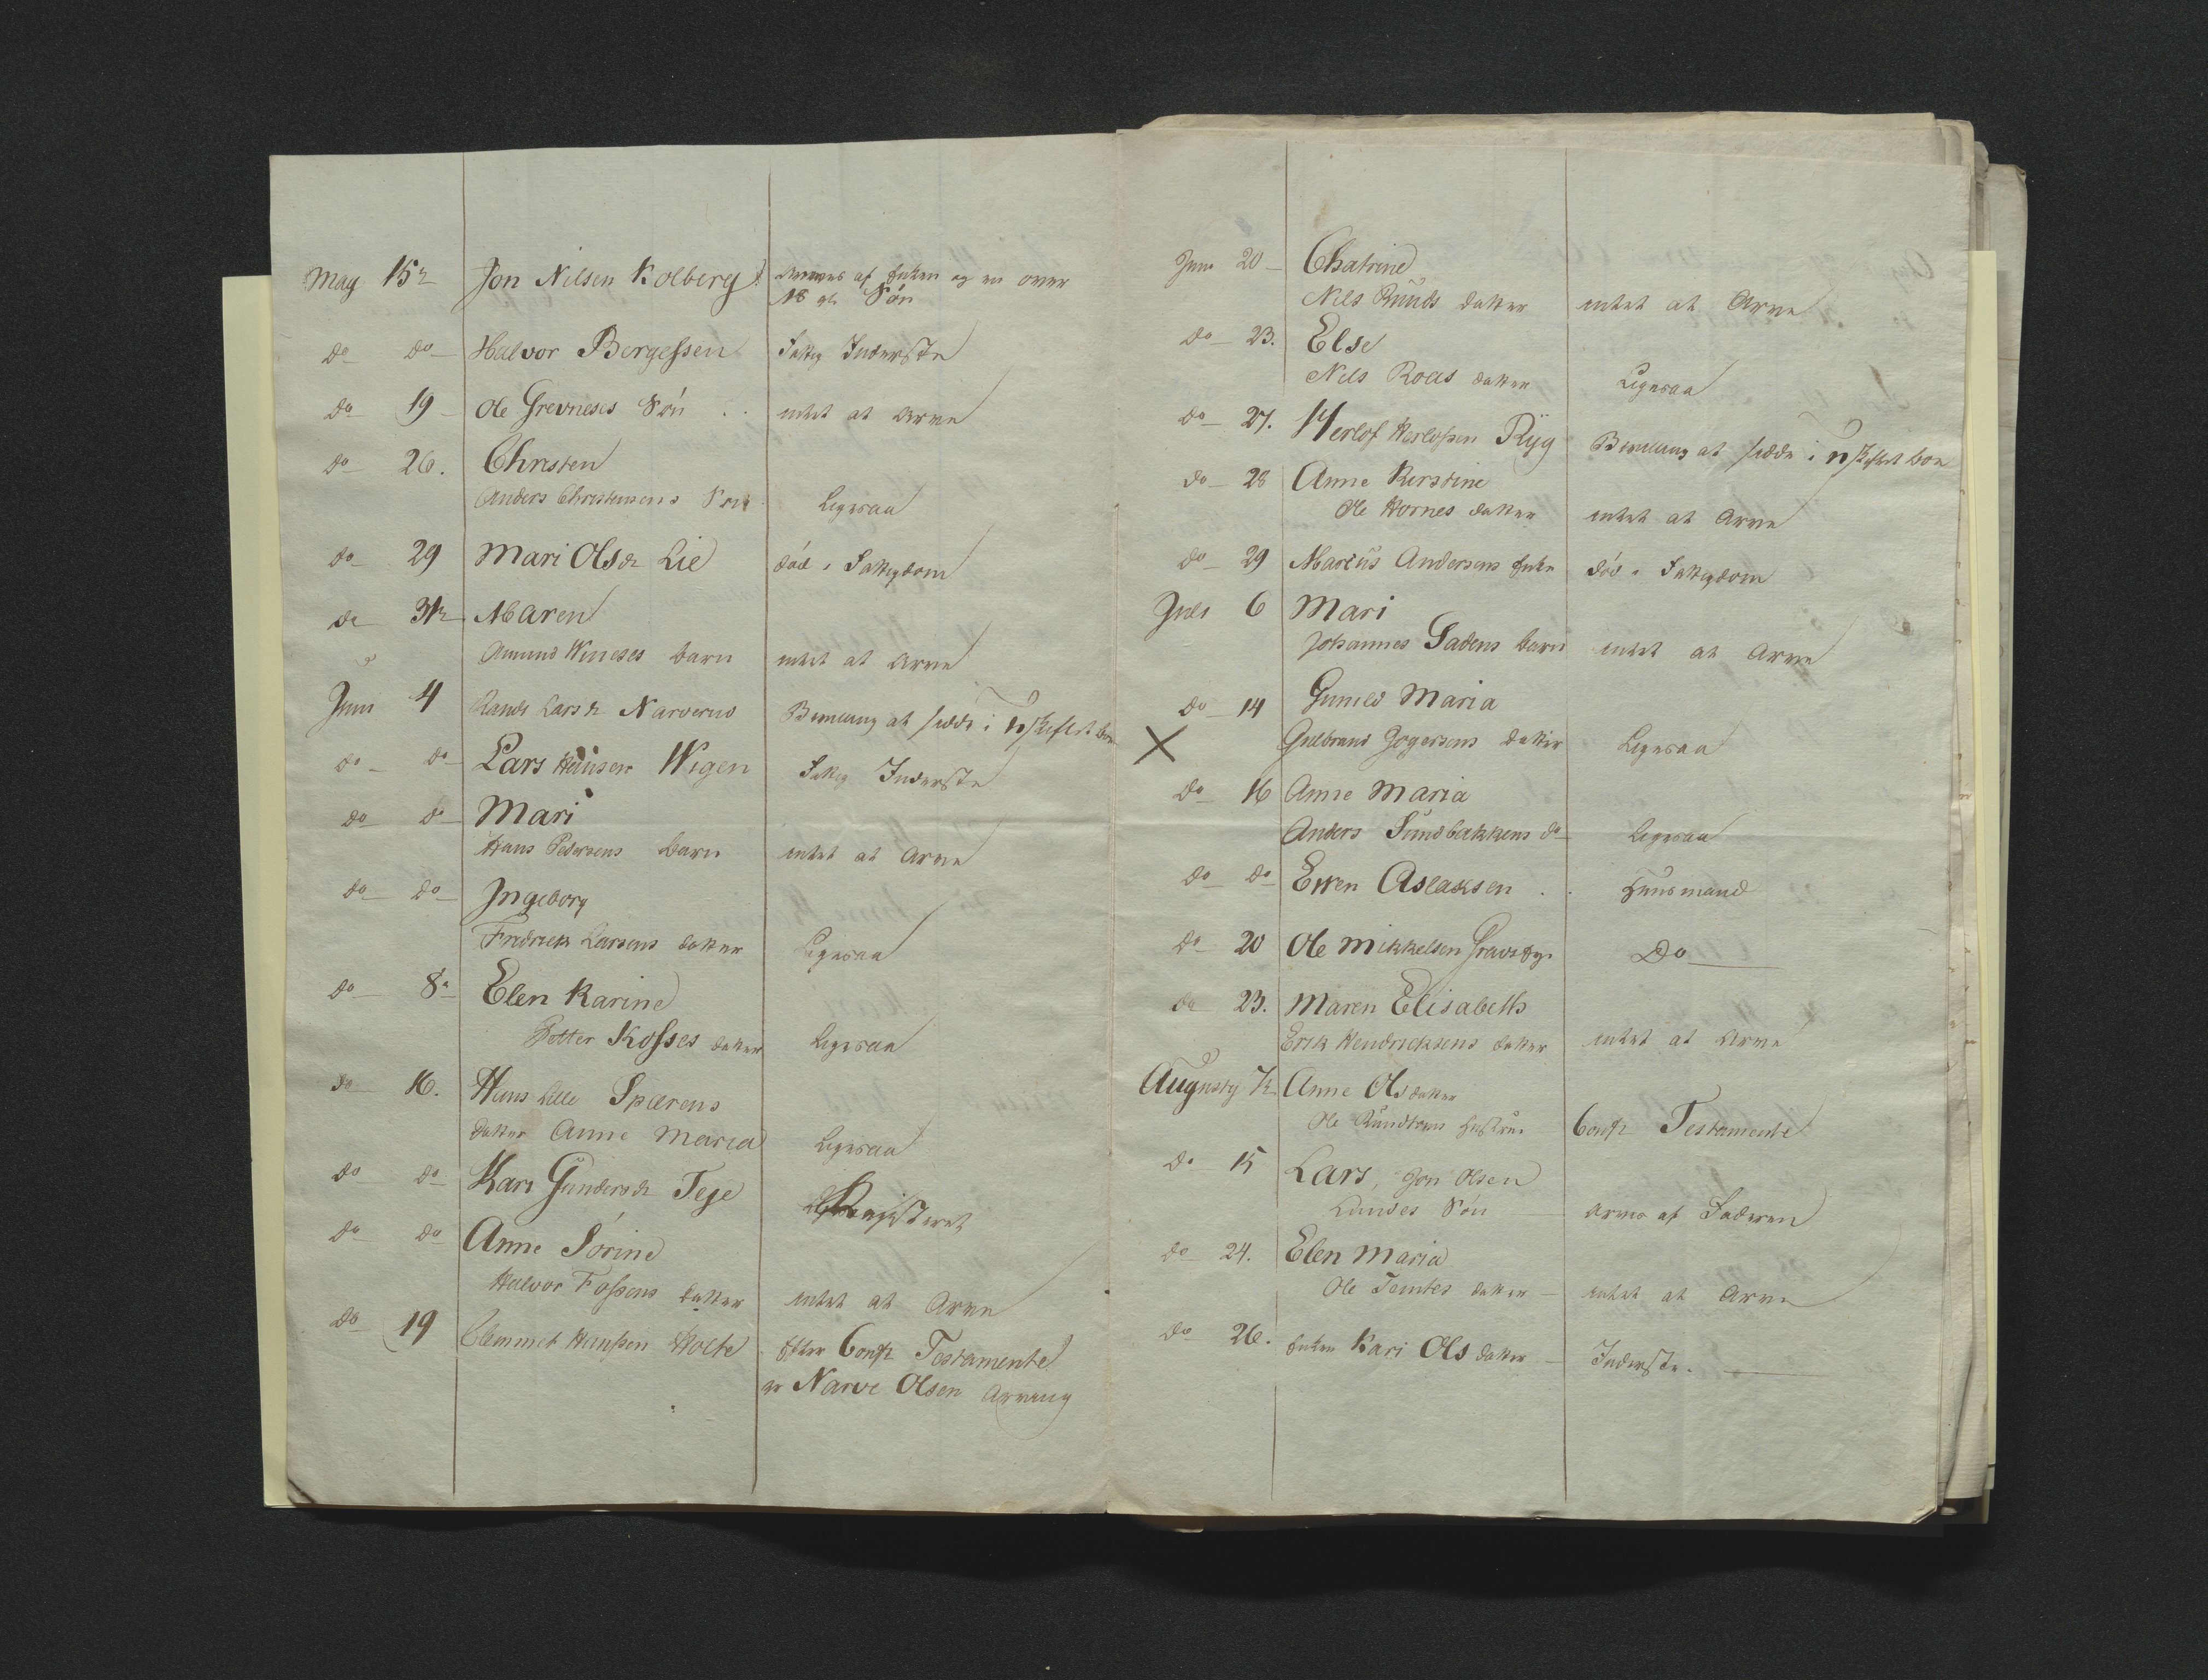 May 15de Jon Nilsen Kolberg Arves af Enken og en over
18 aar Søn
do do Halvor Børgessen Fattig Inderste
do 19 Ole Grevneses Søn intet at Arve
do 26. Christen
Anders Christensens Søn Ligesaa
do 29 Mari Olsdr Lie død i Fattigdom
do 31te Maren
Amund Wineses barn intet at Arve
Juni 4 Randi Larsdr Narverud Bevilling at sidde i Uskiftet boe
do do Lars Hansen Wigen Fattig Inderste
do do Mari
Hans Pedersens barn intet at Arve
do do Ingeborg
Fredrich Larsens datter Ligesaa
do 8de Elen Karine
Petter Kosses datter Ligesaa
do 16. Hans Lille Spærens
datter Anne Maria Ligesaa
do do Kari Gundersdr Teje Registeret
do do Anne Sørine
Halvor Fossens datter intet at Arve
do 19 Clemmet Hanssen Holte Efter Conf: Testamente
er Narve Olsen Arving
Juni 20 Chatrine
Nils Ruuds datter intet at Arve
do 23. Else
Nils Roes datter Ligesaa
do 27. Herlof Herlofsen Ryg Bevilling at sidde i Uskiftet boe
do 28 Anne Kirstine
Ole Hornes datter intet at Arve
do 29 Marcus Andersens Enke død i Fattigdom
Juli 6 Mari
Johannes Ladens barn intet at Arve
do 14 Gunild Maria
X Gulbrand Jogersens datter Ligesaa
do 16 Anne Maria
Anders Sundbakkens do Ligesaa
do do Ewen Aslaksen Huusmand
do 20 Ole Mikkelsen Do
do 23. Maren Elisabeth
Erik Hendricksens datter intet at Arve
Augusty 7de Anne Olsdatter
Ole Hustrue Conf: Testamente
do 15 Lars, Jon Olsen
Lundes Søn Arves af Faderen
do 24. Elen Maria
Ole Temtes datter intet at Arve
do 26. Enken Kari Olsdatter Inderste.